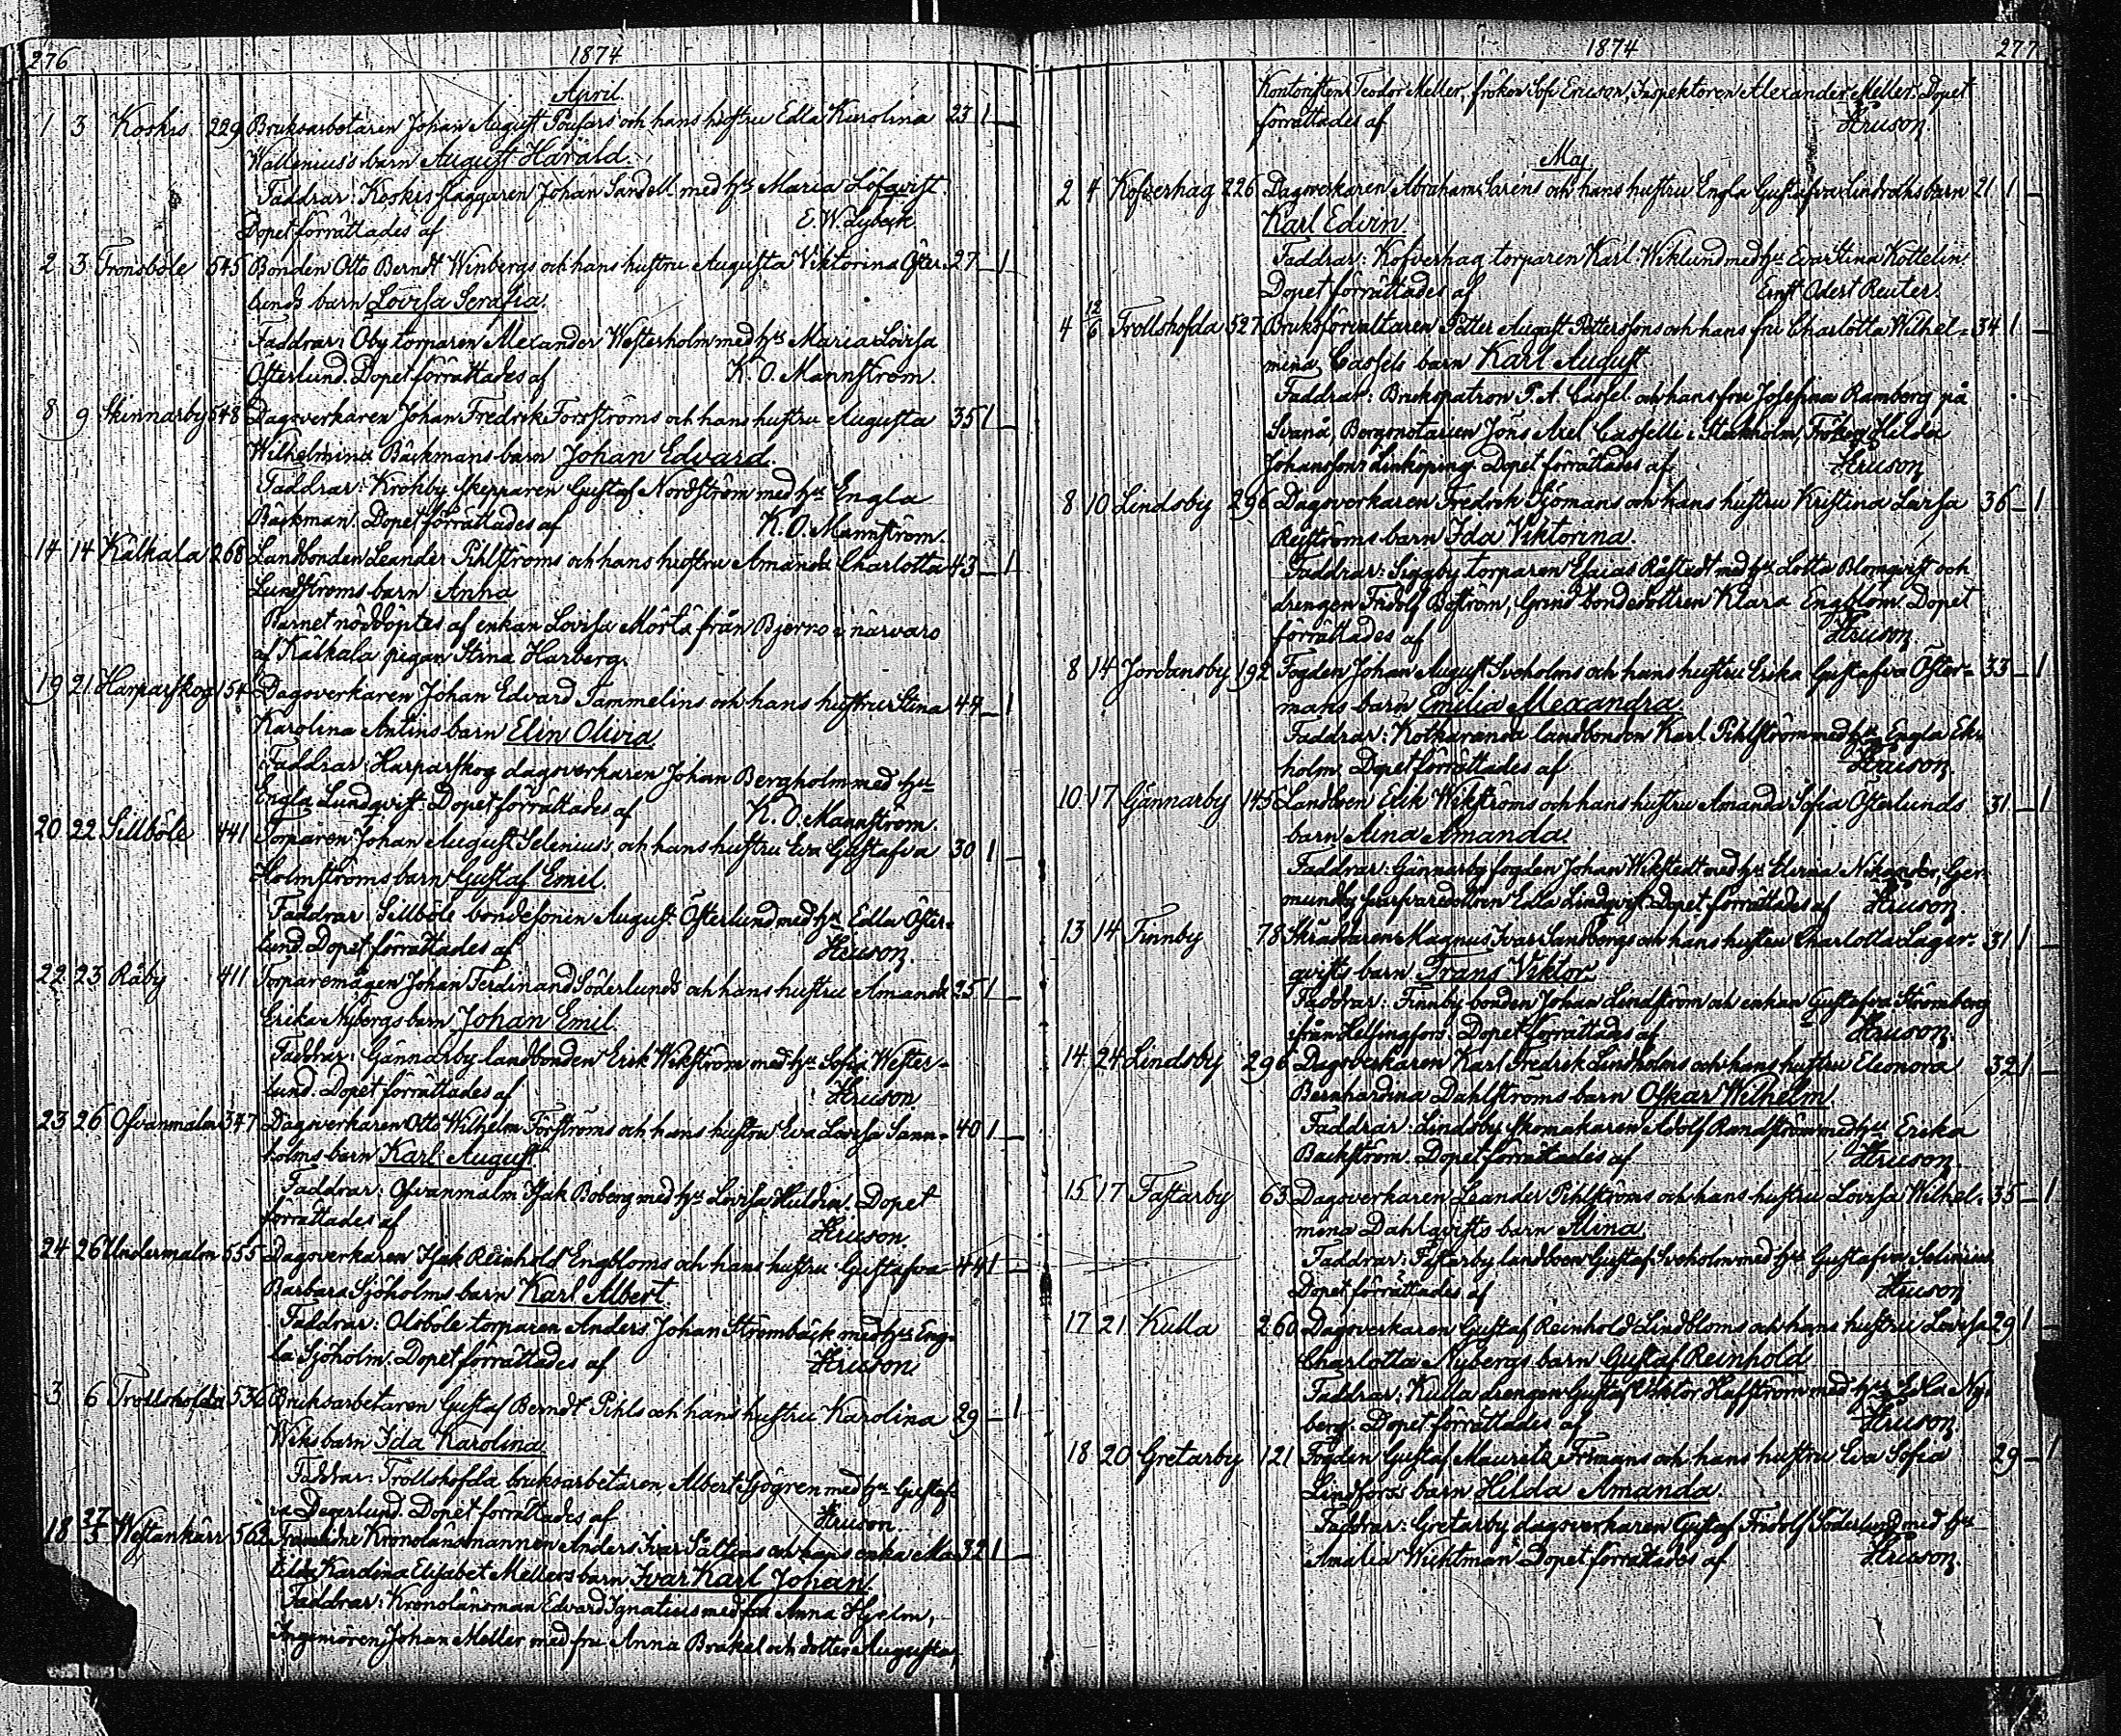 276 1874
April.
1 3 Koskis 229 Bruksarbetaren Johan August Poufars och hans hustru Edla Karolina 23 1 —
Wallenius's barn August Harald.
Faddrar: Koskis slaggaren Johan Sandell med hu Maria Löfqvist.
Dopet förrättades af E. W. Lybeck
2 3 Tronsböle 545 Bonden Otto Berndt Winbergs och hans hustru Augusta Viktorina Öster- 27 — 1
lunds barn Lovisa Serafia.
Faddrar: Oby torparen Alexander Westerholm med hu Maria Lovisa
Österlund. Dopet förrättades af K. O. Mannström.
8 9 Skinnarby 548 Dagsverkaren Johan Fredrik Forsströms och hans hustru Augusta 35 1 —
Wilhelmina Bäckmans barn Johan Edvard.
Faddrar: Krokby skepparen Gustaf Nordström med hu Engla
Bäckman. Dopet förrättades af K. O. Mannström.
14 14 Kälkala 268 Landbonden Leander Pihlströms och hans hustru Amanda Charlotta 43 — 1
Lundströms barn Anna
Barnet nöddöptes af enkan Lovisa Mörtö från Bjerno i närvaro
af Kälkala pigan Stina Harberg.
19 21 Harparskog 154 Dagsverkaren Johan Edvard Sammelins och hans hustru Stina 44 — 1
Karolina Antins barn Elin Olivia.
Faddrar: Harparskog dagsverkaren Johan Bergholm med hu
Engla Lundqvist. Dopet förrättades af K. O. Mannström.
20 22 Sillböle 441 Torparen Johan August Selenius's och hans hustru Eva Gustafva 30 1 —
Holmströms barn Gustaf Emil.
Faddrar: Sillböle bondesonen August Österlund med hu Edla Öster-
lund. Dopet förrättades af Heuson.
22 23 Råby 411 Torparemågen Johan Ferdinand Söderlunds och hans hustru Amanda 25 1 —
Erika Nybergs barn Johan Emil.
Faddrar: Gännarby landbonden Erik Wikström med hu Sofia Wester-
lund. Dopet förrättades af Heuson.
23 26 Ofvanmalm 347 Dagsverkaren Otto Wilhelm Forströms och hans hustru Eva Lovisa Sann- 40 1 —
holms barn Karl August.
Faddrar: Ofvanmalm Isak Boberg med hu Lovisa Huldin. Dopet
förrättades af Heuson.
24 26 Undermalm 555 Dagsverkaren Isak Reinhold Engbloms och hans hustru Gustafva 44 1 —
Barbara Sjöholms barn Karl Albert.
Faddrar: Olsböle torparen Anders Johan Strömbäck med hu Eng-
la Sjöholm. Dopet förrättades af Heuson.
3 6 Trollshofda 536 Bruksarbetaren Gustaf Berndt Pihls och hans hustru Karolina 29 — 1
Wiks barn Ida Karolina.
Faddrar: Trollshofda bruksarbetaren Albert Sjögren med hu Gustaf-
va Degerlund. Dopet förrättades af Heuson.
18 27/5 Westankärr 562 Framlidne Kronolänsmannen Anders Ivar Sältins och hans enka Ma- 32 1 —
tilda Karolina Elisabet Mellers barn Ivar Karl Johan.
Faddrar: Kronolänsman Edvard Ignatius med fru Anna Hjelm,
Ingeniören Johan Meller med fru Anna Brakel och dotter Augusta,
1874 277
Kontoristen Teodor Meller, fröken Sofi Ericson, Inspektoren Alexander Meller. Dopet
förrättades af Heuson.
Maj
2 4 Kofverhag 226 Dagsverkaren Abraham Saréns och hans hustru Engla Gustafva Lindroths barn 21 1 —
Karl Edvin.
Faddrar: Kofverhag torparen Karl Wiklund med hu Eva Stina Kottelin.
Dopet förrättades af Ernst Odert Reuter.
4 12/6 Trollshofda 527 Bruksförvaltaren Petter August Petterssons och hans fru Charlotta Wilhel- 34 1 —
mina Cassels barn Karl August.
Faddrar: Brukspatron P. A. Cassel och hans fru Josefina Ramberg på
Svanå, Bergsnotarien Jöns Axel Casselli i Stockholm, Fröken Hilda
Johansson i Linköping. Dopet förrättades af Heuson
8 10 Lindsby 296 Dagsverkaren Fredrik Sjömans och hans hustru Kristina Lovisa 36 — 1
Rejströms barn Ida Viktorina.
Faddrar: Siggby torparen Esaias Råstedt med hu Lotta Blomqvist och
drengen Fridolf Boström, Grind bondedottren Klara Engblom. Dopet
förrättades af Heuson.
8 14 Jordansby 192 Fogden Johan August Sveholms och hans hustru Erika Gustafva Öster- 33 — 1
mans barn Emilia Alexandra.
Faddrar: Kolkaranda landbonden Karl Pihlström med hu Engla Ek-
holm. Dopet förrättades af Heuson.
10 17 Gännarby 145 Landboen Erik Wikströms och hans hustru Amanda Sofia Österlunds 31 — 1
barn Aina Amanda.
Faddrar: Gännarby fogden Johan Wikstedt med hu Elerina Nikander, Ger-
mundby Edla Lindqvist. Dopet förrättades af Heuson.
13 14 Finnby 78 Skräddaren Magnus Ivar Sandbergs och hans hustru Charlotta Lager- 31 1 —
qvists barn Frans Viktor.
Faddrar: Finnby bonden Johan Lindström och enkan Gustafva Strömberg
från Helsingfors. Dopet förrättades af Heuson.
14 24 Lindsby 296 Dagsverkaren Karl Fredrik Lindholms och hans hustru Eleonora 32 1
Bernhardina Dahlströms barn Oskar Wilhelm.
Faddrar: Lindsby skomakaren Adolf Randström med hu Erika
Backström. Dopet förrättades af Heuson.
15 17 Fastarby 63 Dagsverkaren Leander Pihlströms och hans hustru Lovisa Wilhel- 35 — 1
mina Dahlqvists barn Alina.
Faddrar: Fastarby landboen Gustaf Sveholm med hu Gustafva Selenius.
Dopet förrättades af Heuson
17 21 Kulla 260 Dagsverkaren Gustaf Reinhold Lindbloms och hans hustru Lovisa 29 1 —
Charlotta Nybergs barn Gustaf Reinhold.
Faddrar: Kulla drengen Gustaf Viktor Hafström med hu Edla Ny-
berg. Dopet förrättades af Heuson.
18 20 Gretarby 121 Fogden Gustaf Mauritz Frimans och hans hustru Eva Sofia 29 — 1
Lindforss barn Hilda Amanda.
Faddrar: Gretarby dagsverkaren Gustaf Fridolf Söderlund med hu
Amalia Wichtman. Dopet förrättades af Heuson.